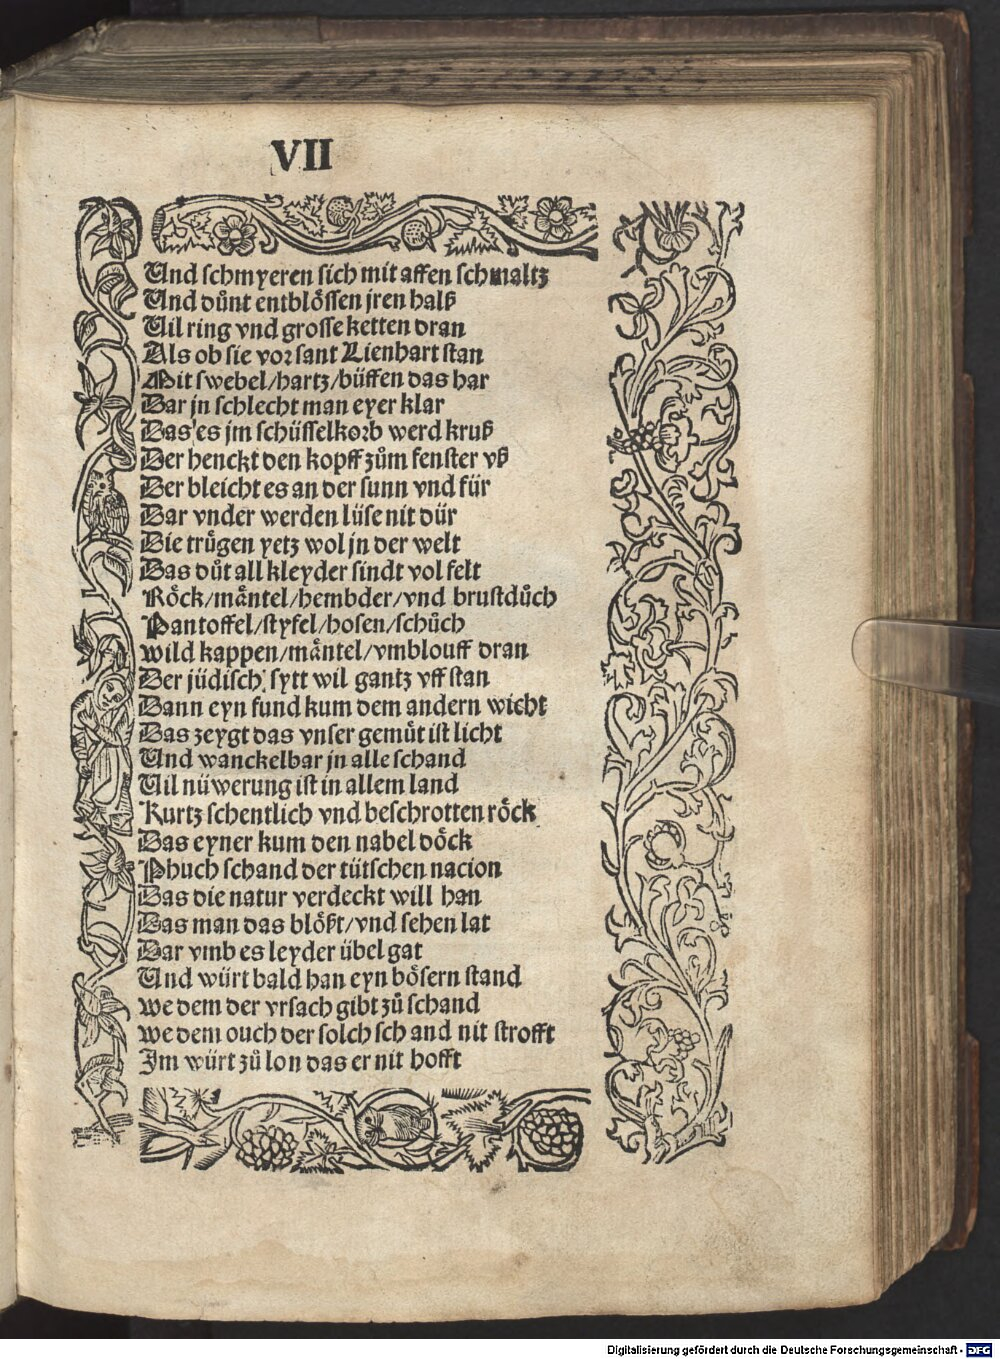 VII
Und schmyeren sich mit affen schmaltz
Und dünt entblössen jren halß
Uil ring vnd grosse ketten dran
Als ob sie vor sant Lienhart stan
Mit swebel/hartz/büffen das har
Dar jn schlecht man eyer klar
Das es jm schüsselkorb werd kruß
Der henckt den kopff zům fenster vß
Der bleicht es an der sunn vnd für
Dar vnder werden lüse nit dür
Die trügen yetz wol jn der welt
Das důt all kleyder sindt vol felt
Röck/mäntel/hembder/vnd brustdůch
Pantoffel/styfel/hosen/schůch
wild kappen/mäntel/vmblouff dran
Der jüdisch sytt wil gantz vff stan
Dann eyn fund kum dem andern wicht
Das zeygt das vnser gemüt ist licht
Und wanckelbar jn alle schand
Uil nüwerung ist in allem land
Kurtz schentlich vnd beschrotten röck
Das eyner kum den nabel döck
Phuch schand der tütschen nacion
Das die natur verdeckt will han
Das man das blößt/vnd sehen lat
Dar vmb es leyder übel gat
Und würt bald han eyn bösern stand
we dem der vrsach gibt zů schand
we dem ouch der solch schand nit strofft
Im würt zů lon das er nit hofft
Digitalisierung gefördert durch die Deutsche Forschungsgemeinschaft - DFG